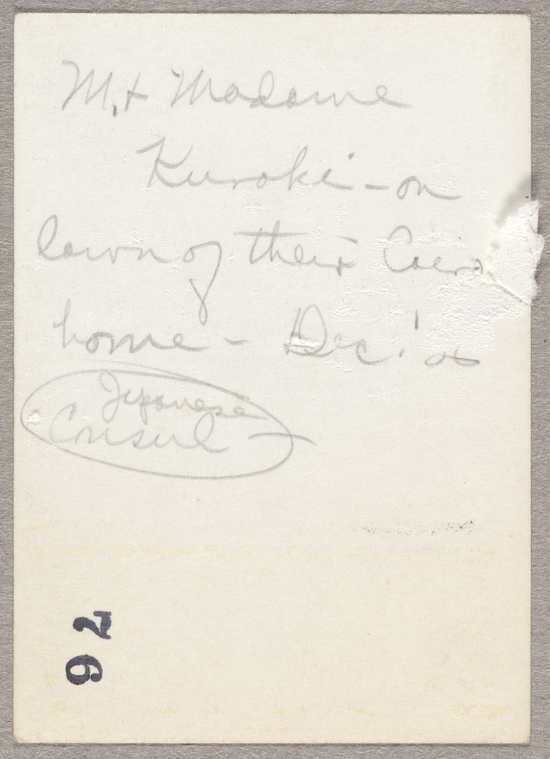 M. & Madame
Kuroki - on
lawn of their Cairo
home - Dec.
Japanese
Consul -
92